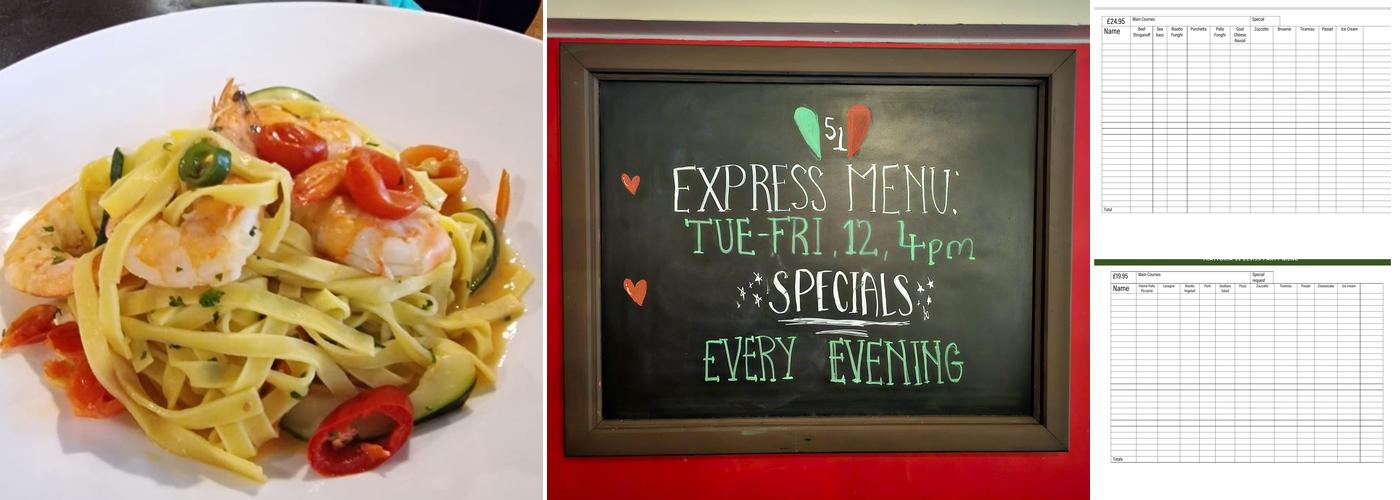 51
EXPRESS MENU:
TUE-FRI, 12, 4pm
SPECIALS
EVERY EVENING
£24.95 Main Courses Special
Name Beef Stroganoff Sea bass Risotto Funghi Porchetta Pollo Funghi Goat Cheese Ravioli Zuccotto Brownie Tiramisu Passet Ice Cream
Total
£19.95 Main Courses Special request
Name Penne Pollo Piccante Lasagne Risotto Vegetali Pork Seafood Salad Pizza Zuccotto Tiramisu Frozen Cheesecake Ice cream
Totals